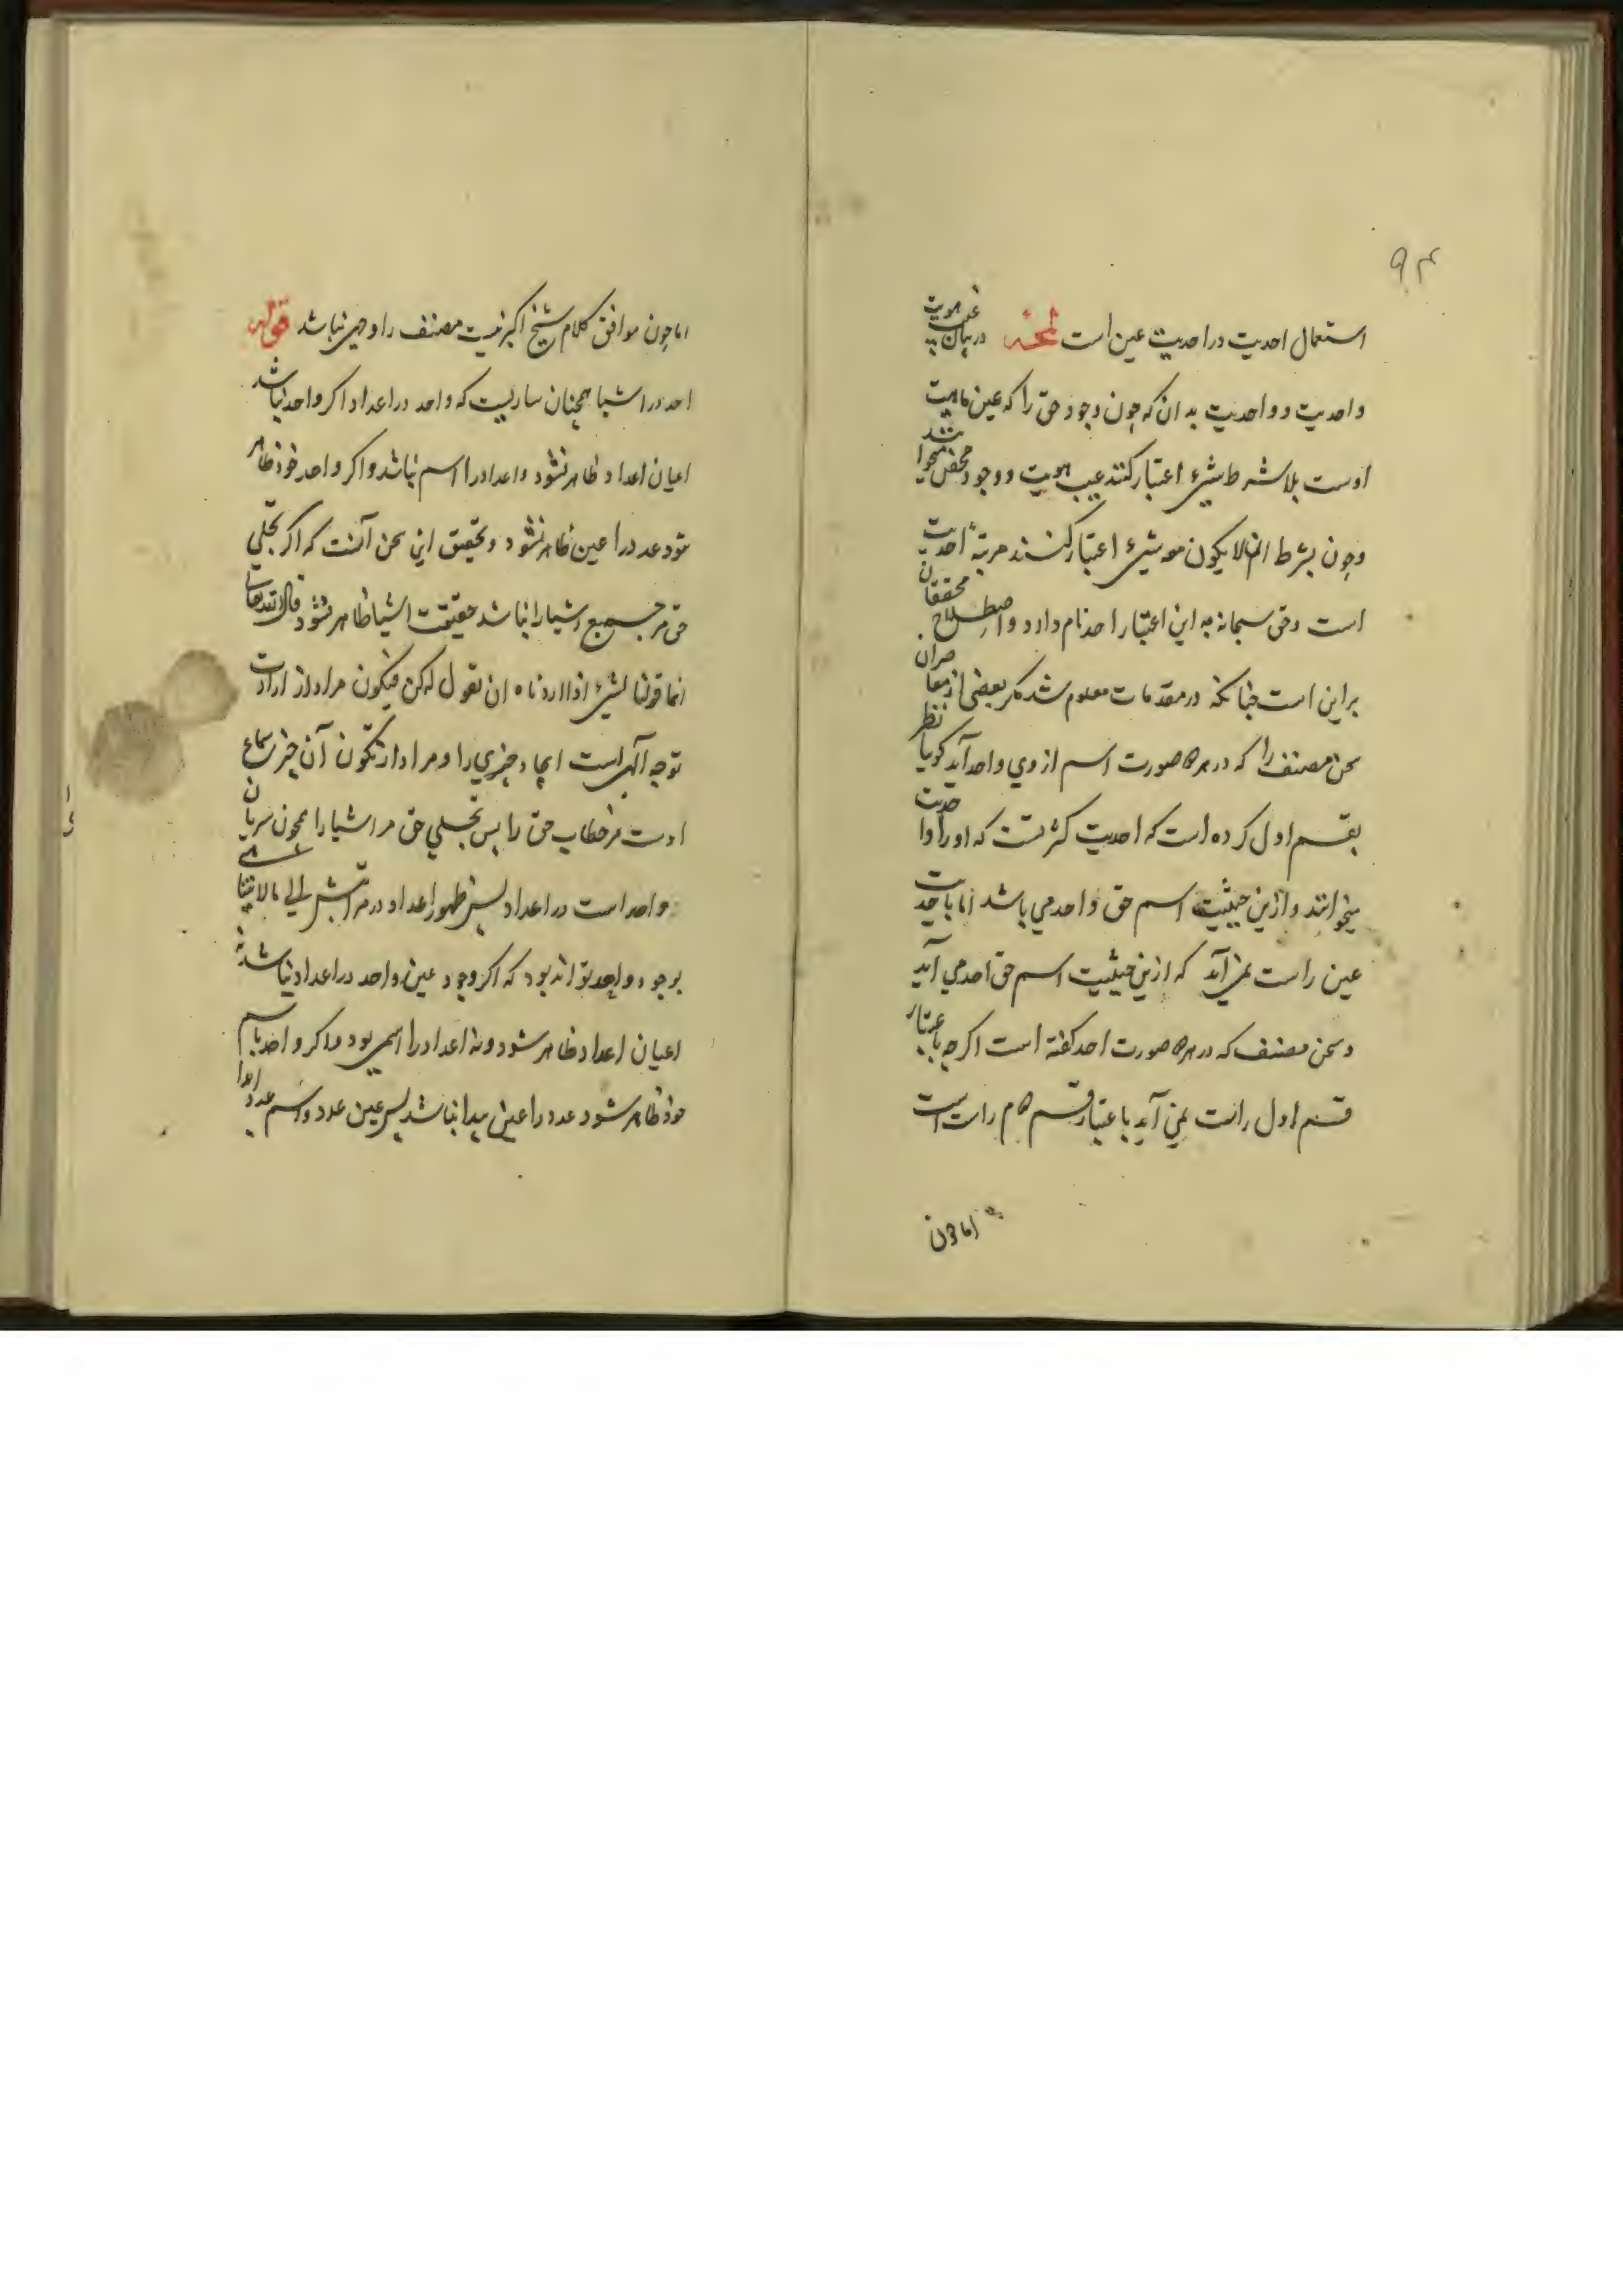 ۹۴
استعمال احدیت در احدیت عین است لمحه در بیان غیب هویت
و احدیت و واحدیت بدانکه چون وجود حق را که عین ماهیت
اوست بلا شرط شیء اعتبار کنند غیب هویت و وجود محض میخوانند
وچون بشرط ان لا یکون معه شیء اعتبار کنند مرتبهٔ احدیت
است وحق سبحانه به این اعتبار احد نام دارد واصطلاح محققان
براین است چنانکه در مقدمات معلوم شد مکر بعضی از معاصران
سخن مصنف را که در هر صورت اسم از وی واحد آید کویا نظر
بقسم اول کرده است که احدیت کثرتست که اورا واحدیت
میخوانند و ازین حیثیت اسم حق واحد می باشد اما باحدیت
عین راست نمی آید که ازین حیثیت اسم حق احد می آید
وسخن مصنف که در هر صورت احد کفته است اکرچه باعتبار
قسم اول راست نمی آید باعتبار قسم راست است
اماچون
اماچون موافق کلام شیخ اکبر نیست مصنف را وجهی نباشد قوله
احد در اشیا همچنان ساریست که واحد در اعداد اکر واحد نباشد
اعیان اعداد ظاهر نشود واعداد را اسم نباشد واکر واحد خود ظاهر
شود عدد را عین ظاهر نشود وتحقیق این سخن آنست که اکر تجلی
حق مر جمیع اشیا را نباشد حقیقت اشیا ظاهر نشود قال الله تعالی
انما قولنا لشیء اذا اردناه ان نقول له کن فیکون مراد از ارادت
توجه آلهی است ایجاد چیزی را ومراد از تکون آن چیز سماع
اوست مر خطاب حق را پس تجلی حق مر اشیا را همچون سریان
واحد است در اعداد پس ظهور اعداد در مراتبش الی ما لا یتناهی
بوجود واحد تواند بود که اکر وجود عین واحد در اعداد نباشد نه
اعیان اعداد ظاهر شود ونه اعداد را اسمی بود واکر واحد باسم
خود ظاهر شود عدد را عین پیدا نباشد پس عین عدد واسم عدد